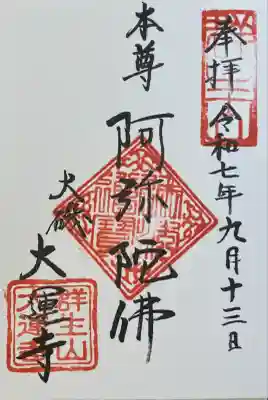 奉拝 令和七年九月十三日
本尊 阿弥陀佛
大磯 大運寺
群生山
大運寺